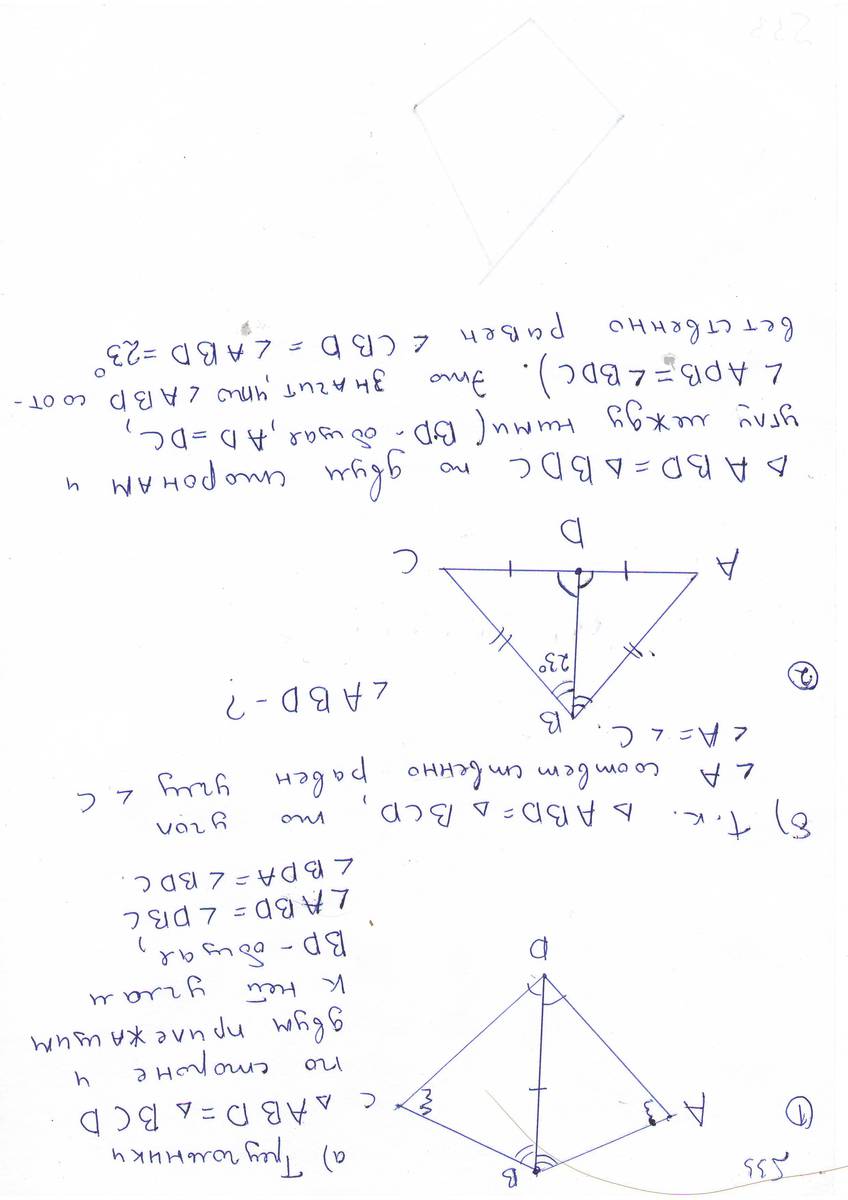 533
①
а) Треугольники
△ ABD = △ BCD
по стороне и
двум прилежащим
к ней углам
BD - общая,
∠ABD = ∠DBC
∠BDA = ∠BDC.
B
A
C
D
б) Т.к. △ ABD = △ BCD, то угол
∠A соответственно равен углу ∠C
∠A = ∠C.
②
∠ABD - ?
B
23°
A
C
D
△ ABD = △ BDC по двум сторонам и
углу между ними (BD - общая, AD = DC,
∠ADB = ∠BDC). Это значит, что ∠ABD соот-
ветственно равен ∠CBD = ∠ABD = 23°
533